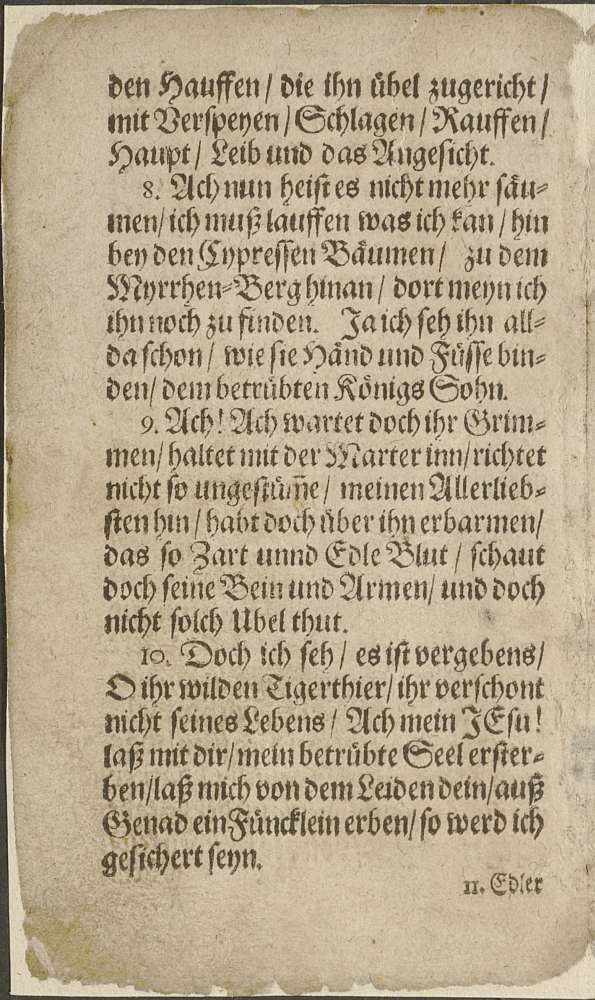 den Hauffen / die ihn übel zugericht /
mit Verspeyen / Schlagen / Rauffen /
Haupt / Leib und das Angesicht.
8. Ach nun heist es nicht mehr säu-
men / ich muß lauffen was ich kan / hin
bey den Cypressen Bäumen / zu dem
Myrrhen-Berg hinan / dort meyn ich
ihn noch zu finden. Ja ich seh ihn all-
da schon / wie sie Händ und Füsse bin-
den / dem betrübten Königs Sohn.
9. Ach! Ach wartet doch ihr Grim-
men / haltet mit der Marter inn / richtet
nicht so ungestüm̃e / meinen Allerlieb-
sten hin / habt doch über ihn erbarmen /
das so Zart unnd Edle Blut / schaut
doch seine Bein und Armen / und doch
nicht solch Ubel thut.
10. Doch ich seh / es ist vergebens /
O ihr wilden Tigerthier / ihr verschont
nicht seines Lebens / Ach mein JEsu!
laß mit dir / mein betrübte Seel erster-
ben / laß mich von dem Leiden dein / auß
Genad ein Füncklein erben / so werd ich
gesichert seyn.
11. Edler